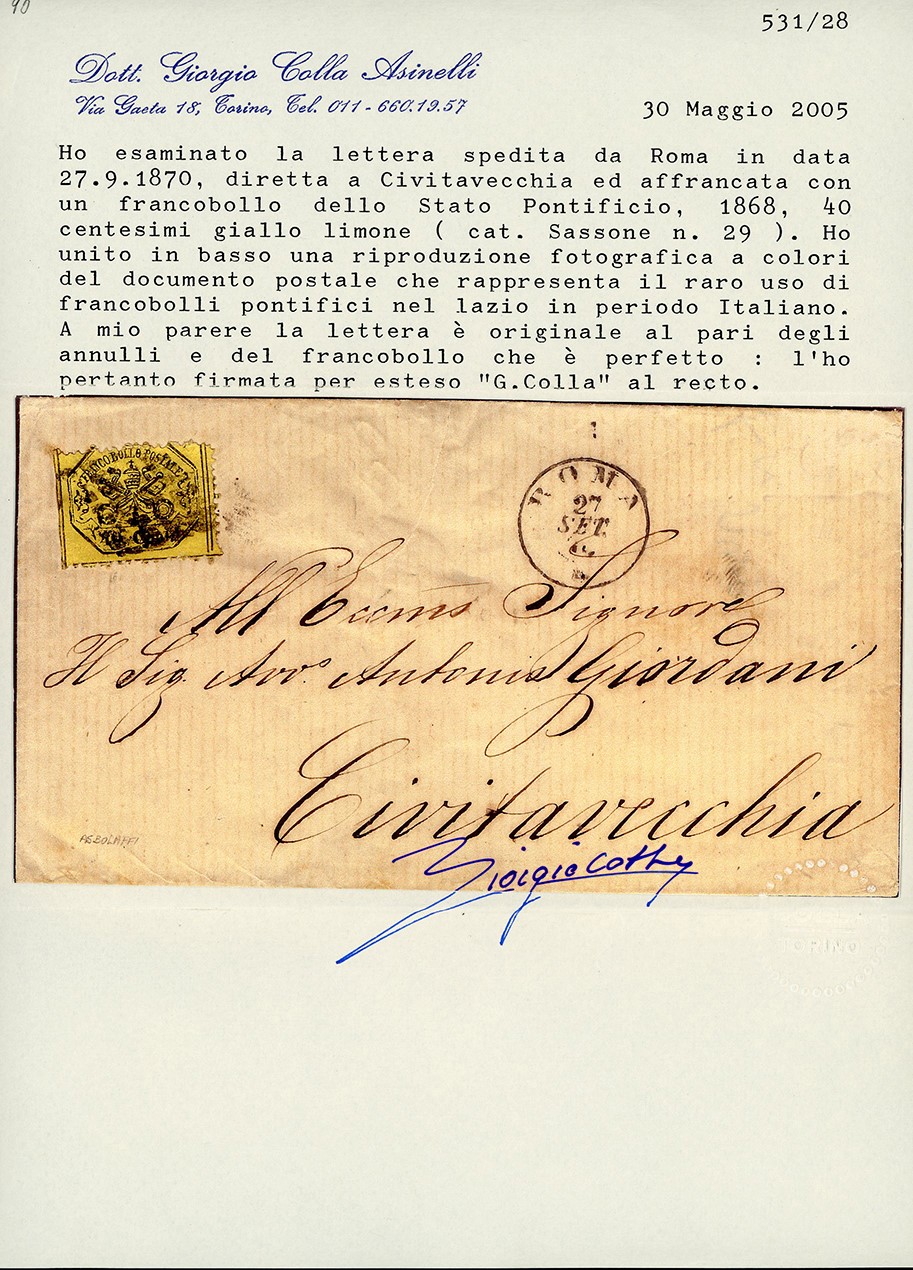 90
531/28
Dott. Giorgio Colla Asinelli
Via Gaeta 18, Torino, Tel. 011-660.19.57
30 Maggio 2005
Ho esaminato la lettera spedita da Roma in data
27.9.1870, diretta a Civitavecchia ed affrancata con
un francobollo dello Stato Pontificio, 1868, 40
centesimi giallo limone ( cat. Sassone n. 29 ). Ho
unito in basso una riproduzione fotografica a colori
del documento postale che rappresenta il raro uso di
francobolli pontifici nel lazio in periodo Italiano.
A mio parere la lettera è originale al pari degli
annulli e del francobollo che è perfetto : l'ho
pertanto firmata per esteso "G.Colla" al recto.
FRANCOBOLLO POSTALE
ROMA
27
SET.
All Eccmo Signore
Il Sig. Avv.º Antonio Giordani
Civitavecchia
TORINO